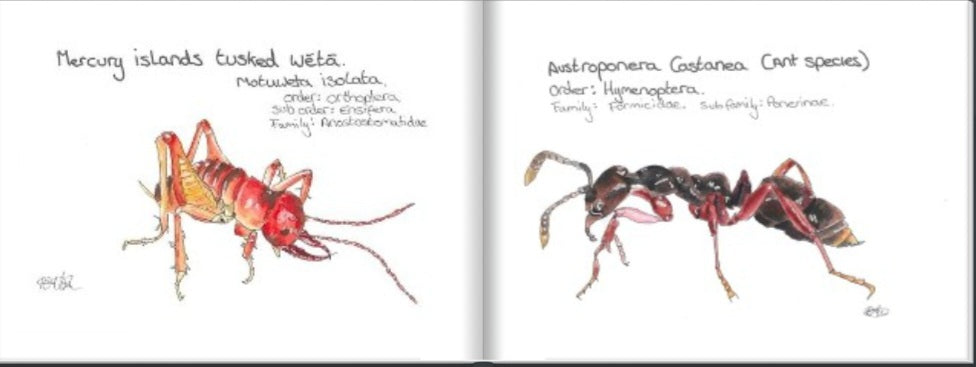 Mercury islands tusked wētā.
Motuweta isolata.
order: orthoptera
sub order: Ensifera
Family: Anostostomatidae
Austroponera Castanea (Ant species)
Order: Hymenoptera.
Family: Formicidae. Subfamily: Ponerinae.